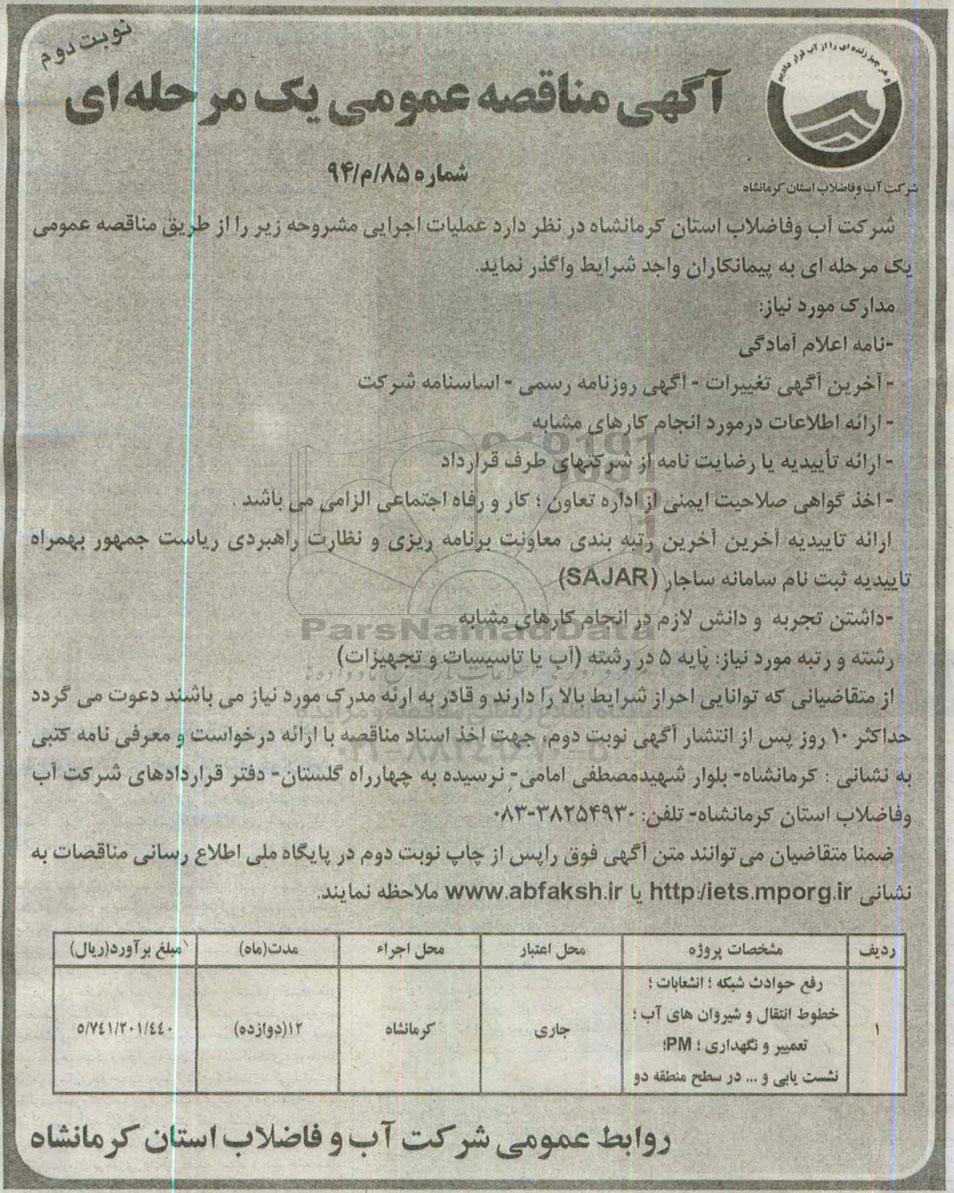 نوبت دوم
و هر چیز زنده ای را از آب قرار دادیم
آگهی مناقصه عمومی یک مرحله ای
شماره ۸۵/م/۹۴
شرکت آب وفاضلاب استان کرمانشاه
شرکت آب وفاضلاب استان کرمانشاه در نظر دارد عملیات اجرایی مشروحه زیر را از طریق مناقصه عمومی
یک مرحله ای به پیمانکاران واجد شرایط واگذر نماید.
مدارک مورد نیاز:
-نامه اعلام آمادگی
- آخرین آگهی تغییرات - آگهی روزنامه رسمی - اساسنامه شرکت
- ارائه اطلاعات درمورد انجام کارهای مشابه
- ارائه تأییدیه یا رضایت نامه از شرکتهای طرف قرارداد
- اخذ گواهی صلاحیت ایمنی از اداره تعاون ؛ کار و رفاه اجتماعی الزامی می باشد .
ارائه تاییدیه آخرین آخرین رتبه بندی معاونت برنامه ریزی و نظارت راهبردی ریاست جمهور بهمراه
تاییدیه ثبت نام سامانه ساجار (SAJAR)
-داشتن تجربه و دانش لازم در انجام کارهای مشابه
ParsNamadData
رشته و رتبه مورد نیاز: پایه ۵ در رشته (آب یا تاسیسات و تجهیزات)
از متقاضیانی که توانایی احراز شرایط بالا را دارند و قادر به ارئه مدرک مورد نیاز می باشند دعوت می گردد
حداکثر ۱۰ روز پس از انتشار آگهی نوبت دوم، جهت اخذ اسناد مناقصه با ارائه درخواست و معرفی نامه کتبی
به نشانی : کرمانشاه- بلوار شهیدمصطفی امامی- نرسیده به چهارراه گلستان- دفتر قراردادهای شرکت آب
وفاضلاب استان کرمانشاه- تلفن: ۳۸۲۵۴۹۳۰-۰۸۳
ضمنا متقاضیان می توانند متن آگهی فوق راپس از چاپ نوبت دوم در پایگاه ملی اطلاع رسانی مناقصات به
نشانی http:/iets.mporg.ir یا www.abfaksh.ir ملاحظه نمایند.
ردیف مشخصات پروژه محل اعتبار محل اجراء مدت(ماه) مبلغ برآورد(ریال)
رفع حوادث شبکه ؛ انشعابات ؛
خطوط انتقال و شیروان های آب ؛
۱ جاری کرمانشاه ۱۲(دوازده) ۵/۷۴۱/۲۰۱/۴۴۰
تعمییر و نگهداری ؛ PM؛
نشست یابی و ... در سطح منطقه دو
روابط عمومی شرکت آب و فاضلاب استان کرمانشاه